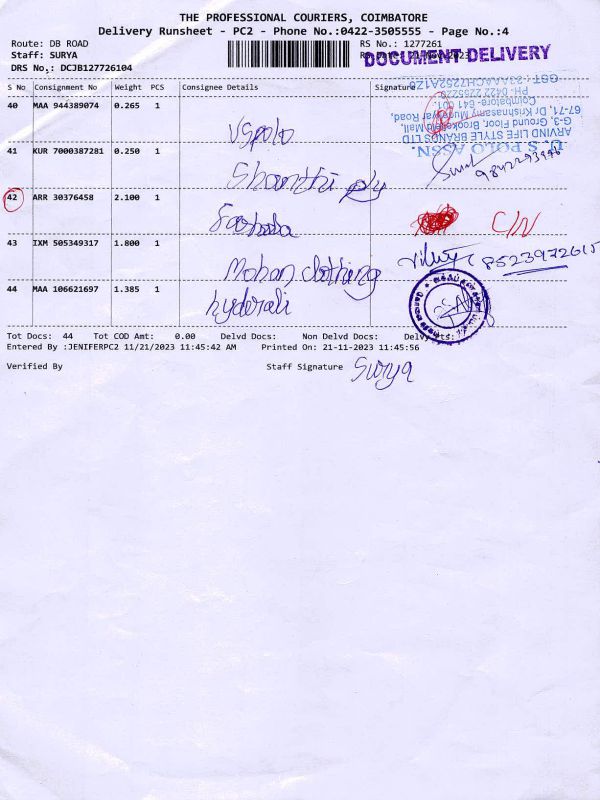 THE PROFESSIONAL COURIERS, COIMBATORE
Delivery Runsheet - PC2 - Phone No.:0422-3505555 - Page No.:4
Route: DB ROAD
RS No.: 1277261
Staff: SURYA
DOCUMENT DELIVERY
DRS No.: DCJB127726104
S No Consignment No Weight PCS Consignee Details Signature
U.S POLO ASSN.
ARVIND LIFE STYLE BRANDS LTD
G-3, Ground Floor, Brookefield Mall,
67-71, Dr Krishnasamy Mudaliyar Road,
Coimbatore- 641 001.
PH: 0422 2255220
40 MAA 944389074 0.265 1
USpolo
41 KUR 7000387281 0.250 1
Shanthi ply
42 ARR 30376458 2.100 1
C/N
43 IXM 505349317 1.800 1
Mohan clothing
8523972615
44 MAA 106621697 1.385 1
hyderali
Tot Docs: 44 Tot COD Amt: 0.00 Delvd Docs: Non Delvd Docs:
Entered By :JENIFERPC2 11/21/2023 11:45:42 AM Printed On: 21-11-2023 11:45:56
Verified By Staff Signature Surya